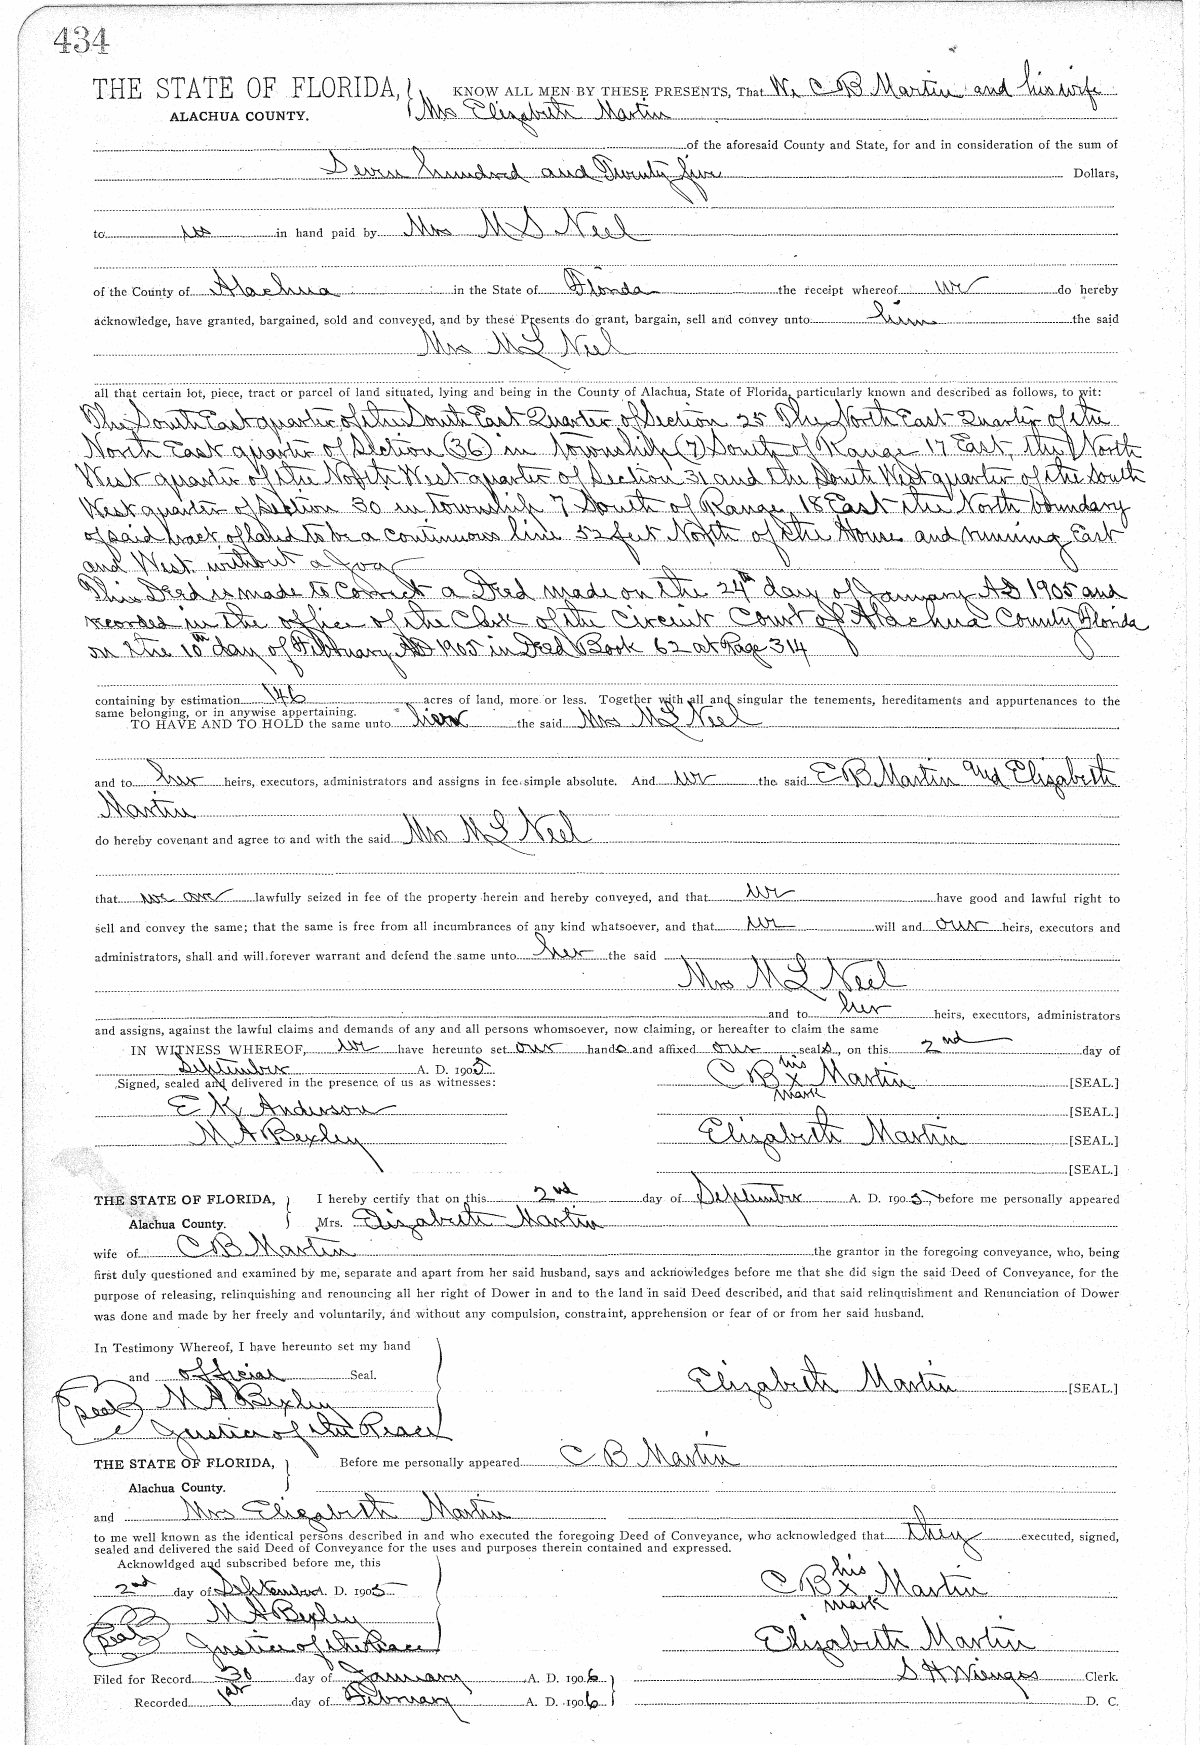 434
THE STATE OF FLORIDA, KNOW ALL MEN BY THESE PRESENTS, That We C B Martin and his wife
ALACHUA COUNTY. Mrs Elizabeth Martin
of the aforesaid County and State, for and in consideration of the sum of
Seven hundred and Twenty five Dollars,
to us in hand paid by Mrs M L Neel
of the County of Alachua in the State of Florida the receipt whereof we do hereby
acknowledge, have granted, bargained, sold and conveyed, and by these Presents do grant, bargain, sell and convey unto him the said
Mrs M L Neel
all that certain lot, piece, tract or parcel of land situated, lying and being in the County of Alachua, State of Florida, particularly known and described as follows, to wit:
The South East quarter of the South East Quarter of Section 25 The North East Quarter of the
North East quarter of Section (36) in Township (7) South of Range 17 East, the North
West quarter of the North West quarter of Section 31 and the South West quarter of the South
West quarter of Section 30 in township 7 South of Range 18 East the North boundary
of said tract of land to be a continuous line 52 feet North of the House and running East
and West without a Jog
This Deed is made to Correct a Deed made on the 24th day of January AD 1905 and
recorded in the office of the Clerk of the Circuit Court of Alachua County Florida
on the 10th day of February AD 1905 in Deed Book 62 at Page 314
containing by estimation 146 acres of land, more or less. Together with all and singular the tenements, hereditaments and appurtenances to the
same belonging, or in anywise appertaining.
TO HAVE AND TO HOLD the same unto her the said Mrs M L Neel
and to her heirs, executors, administrators and assigns in fee simple absolute. And we the said E B Martin and Elizabeth
Martin
do hereby covenant and agree to and with the said Mrs M L Neel
that we are lawfully seized in fee of the property herein and hereby conveyed, and that we have good and lawful right to
sell and convey the same; that the same is free from all incumbrances of any kind whatsoever, and that we will and our heirs, executors and
administrators, shall and will forever warrant and defend the same unto her the said
Mrs M L Neel
and to her heirs, executors, administrators
and assigns, against the lawful claims and demands of any and all persons whomsoever, now claiming, or hereafter to claim the same
IN WITNESS WHEREOF, we have hereunto set our hands and affixed our seals, on this 2nd day of
September A. D. 1905
Signed, sealed and delivered in the presence of us as witnesses: C B his x mark Martin [SEAL.]
E K Anderson [SEAL.]
M A Bexley Elizabeth Martin [SEAL.]
[SEAL.]
THE STATE OF FLORIDA, I hereby certify that on this 2nd day of September A. D. 1905, before me personally appeared
Alachua County. Mrs. Elizabeth Martin
wife of C B Martin the grantor in the foregoing conveyance, who, being
first duly questioned and examined by me, separate and apart from her said husband, says and acknowledges before me that she did sign the said Deed of Conveyance, for the
purpose of releasing, relinquishing and renouncing all her right of Dower in and to the land in said Deed described, and that said relinquishment and Renunciation of Dower
was done and made by her freely and voluntarily, and without any compulsion, constraint, apprehension or fear of or from her said husband.
In Testimony Whereof, I have hereunto set my hand
and official Seal. Elizabeth Martin [SEAL.]
Seal M A Bexley
Justice of the Peace
THE STATE OF FLORIDA, Before me personally appeared C B Martin
Alachua County.
and Mrs Elizabeth Martin
to me well known as the identical persons described in and who executed the foregoing Deed of Conveyance, who acknowledged that they executed, signed,
sealed and delivered the said Deed of Conveyance for the uses and purposes therein contained and expressed.
Acknowldged and subscribed before me, this
2nd day of September A. D. 1905 C B his x mark Martin
Seal M A Bexley
Justice of the Peace Elizabeth Martin
Filed for Record 30 day of January A. D. 1906 S H Wienges Clerk.
Recorded 1st day of February A. D. 1906 D. C.